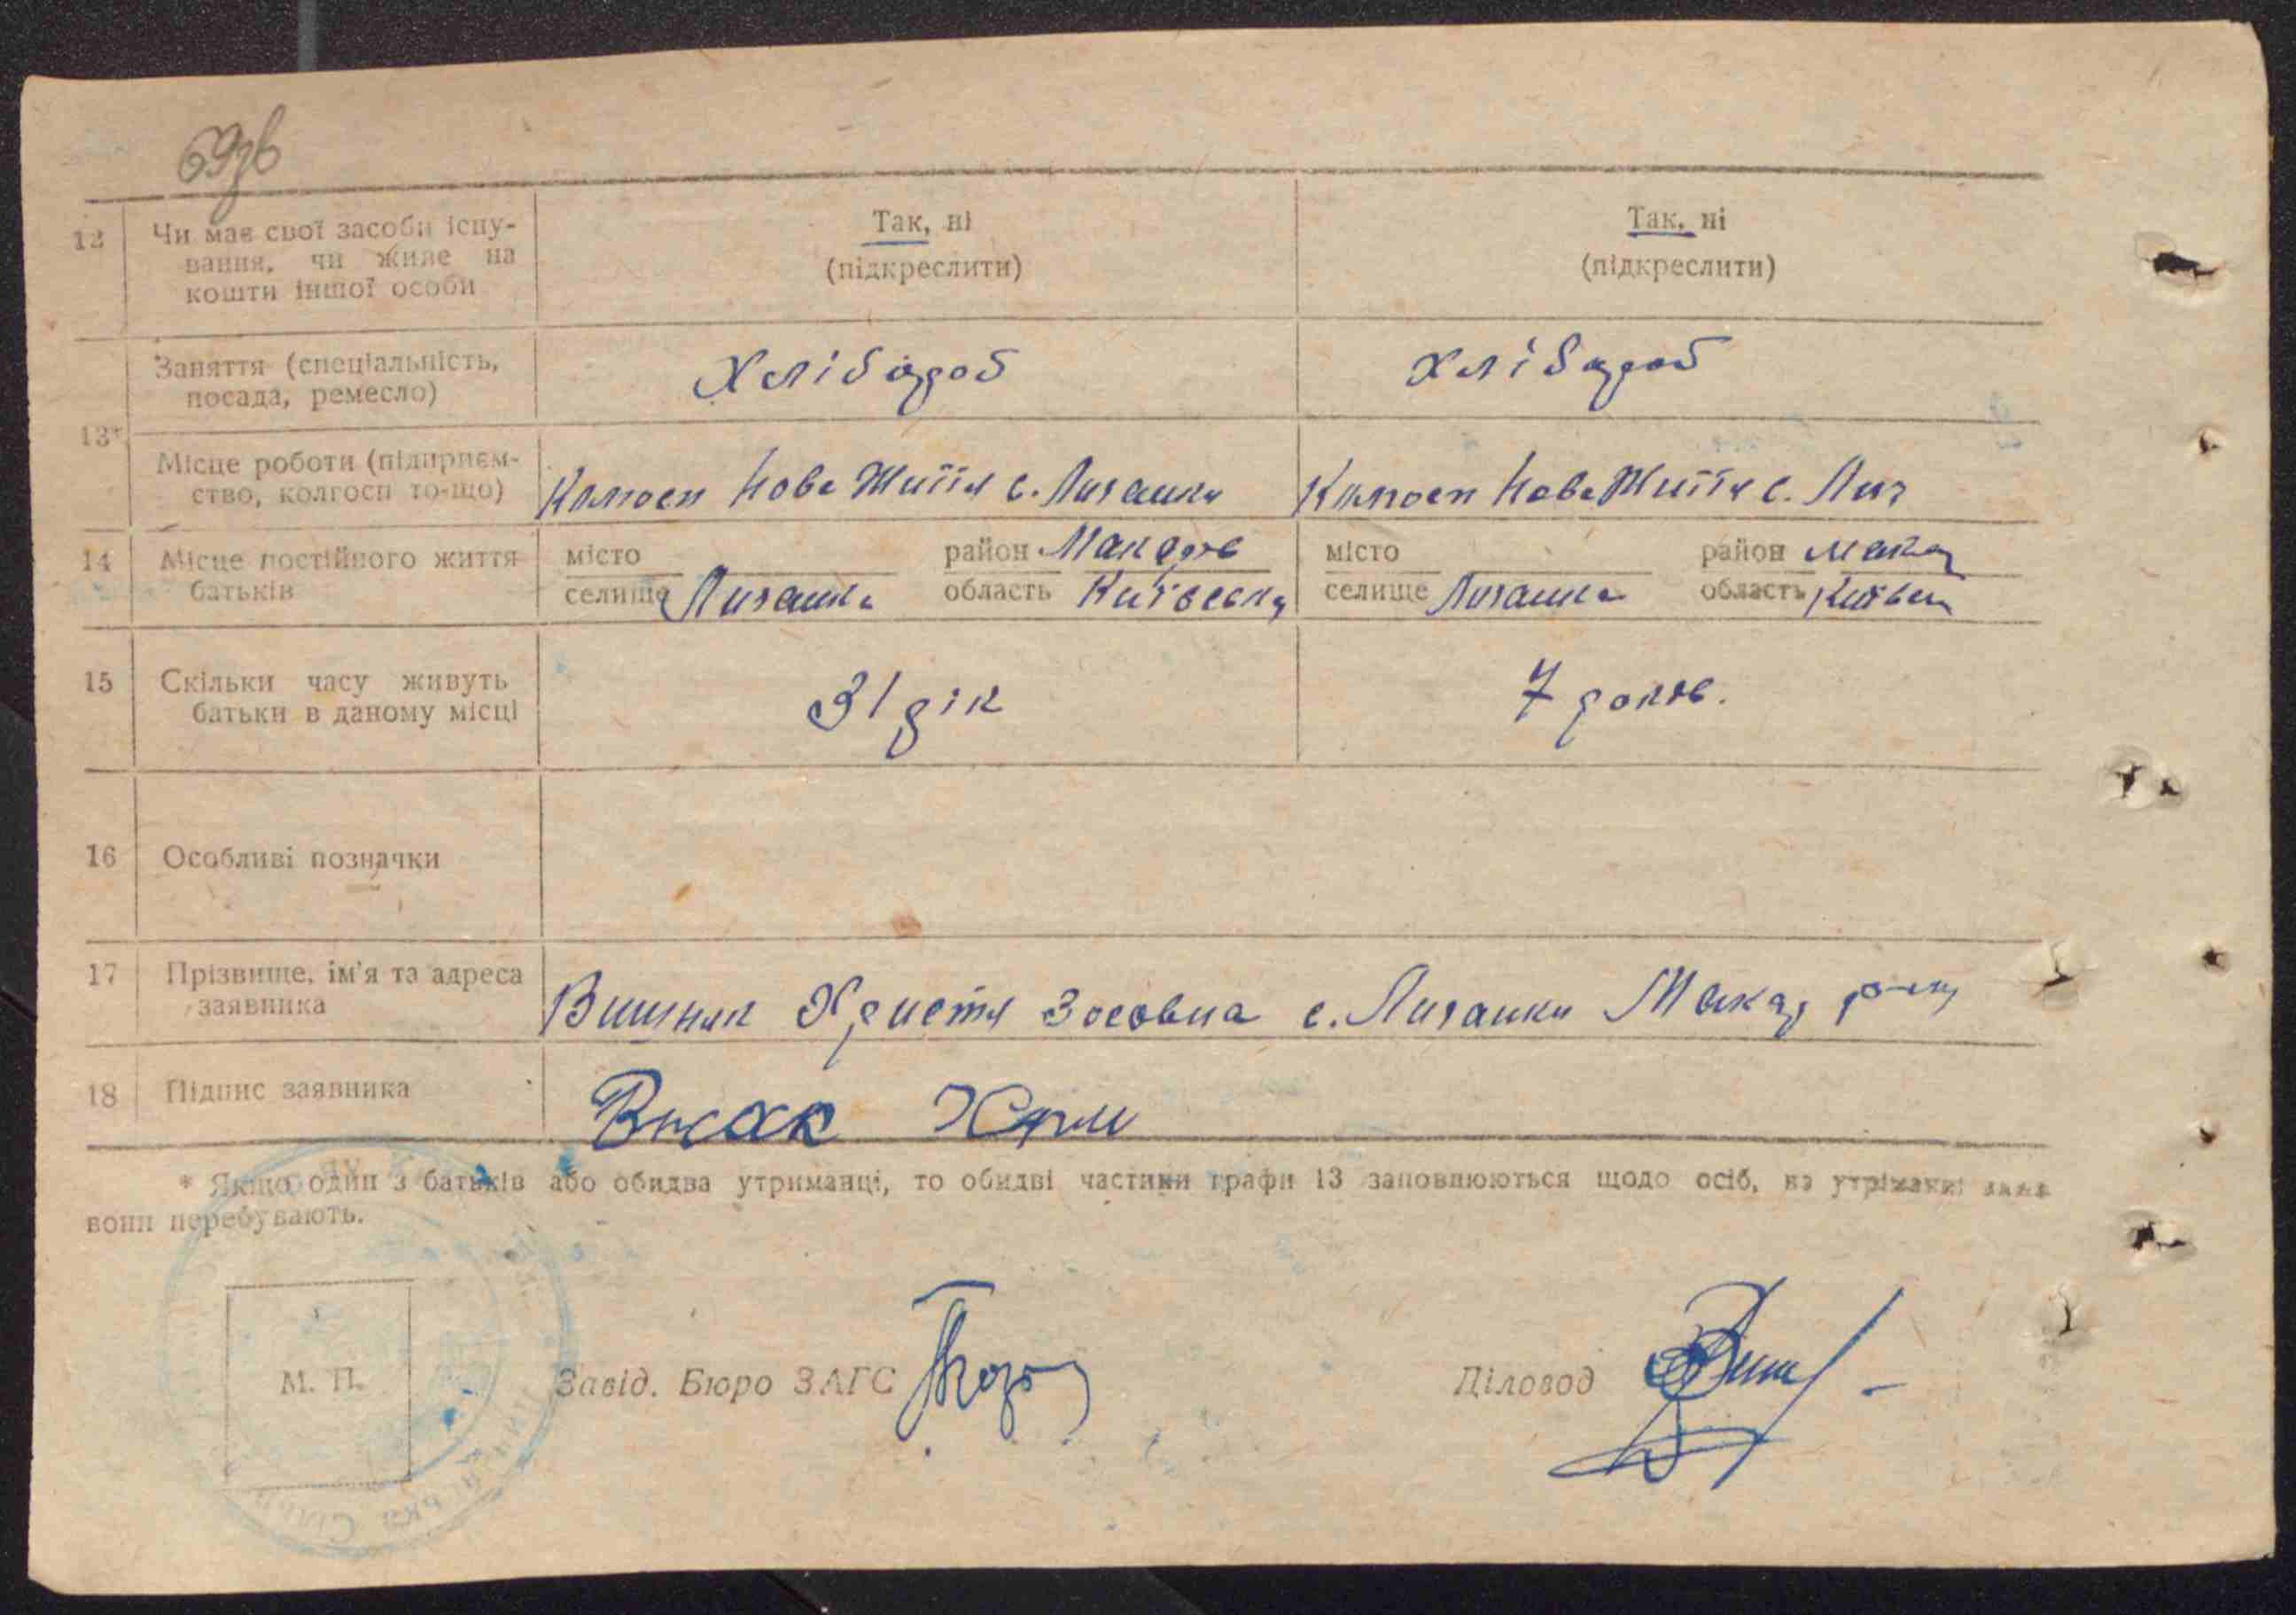 69зв
12 Чи має свої засоби існу-
вання, чи живе на
кошти іншої особи
Так, ні
(підкреслити)
Так, ні
(підкреслити)
13*
Заняття (спеціальність,
посада, ремесло)
Хлібороб
Хлібороб
Місце роботи (підприєм-
ство, колгосп то-що)
Колгосп Нове Життя с. Личанки
Колгосп Нове Життя с. Лич
14 Місце постійного життя
батьків
місто район Макарів
селище Личанка область Київська
місто район Мака
селище Личанка область Київськ
15 Скільки часу живуть
батьки в даному місці
31 рік
7 років.
16 Особливі позначки
17 Прізвище, ім'я та адреса
заявника
Вишняк Христя Зосовна с. Личанки Макар р-ну
18 Підпис заявника
* Якщо один з батьків або обидва утриманці, то обидві частини графи 13 заповнюються щодо осіб, на утриманні яких
вони перебувають.
М. П.
Завід. Бюро ЗАГС
Діловод